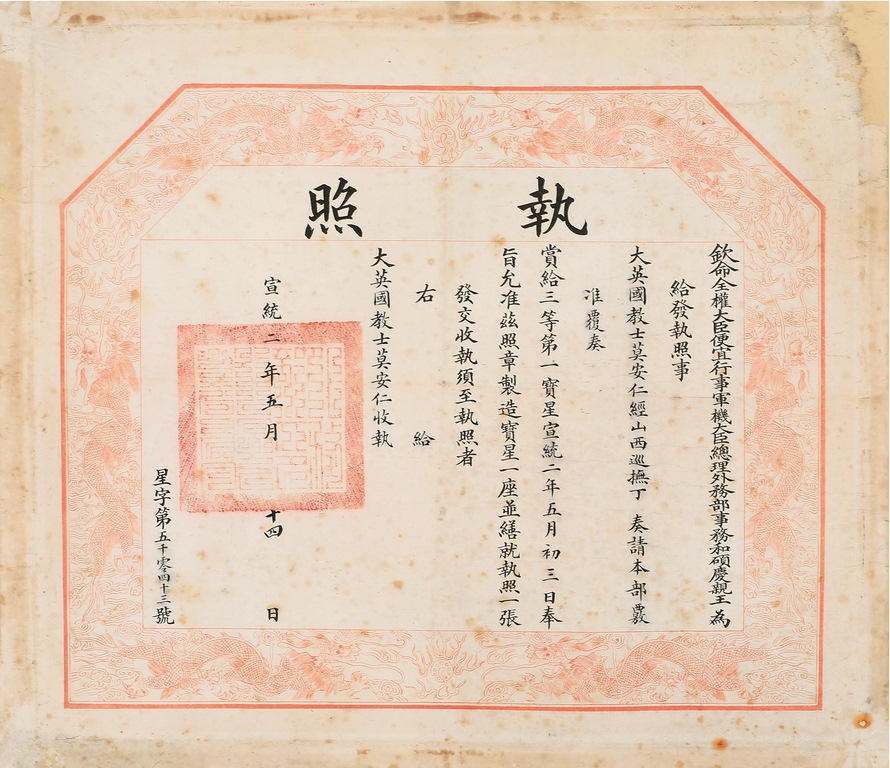 執照
欽命全權大臣便宜行事軍機大臣總理外務部事務和碩慶親王為
給發執照事
大英國教士莫安仁經山西巡撫丁 奏請本部覈
准覆奏
賞給三等第一寶星宣統二年五月初三日奉
旨允准茲照章製造寶星一座並繕就執照一張
發交收執須至執照者
右給
大英國教士莫安仁收執
宣統二年五月十四日
星字第五千零四十三號